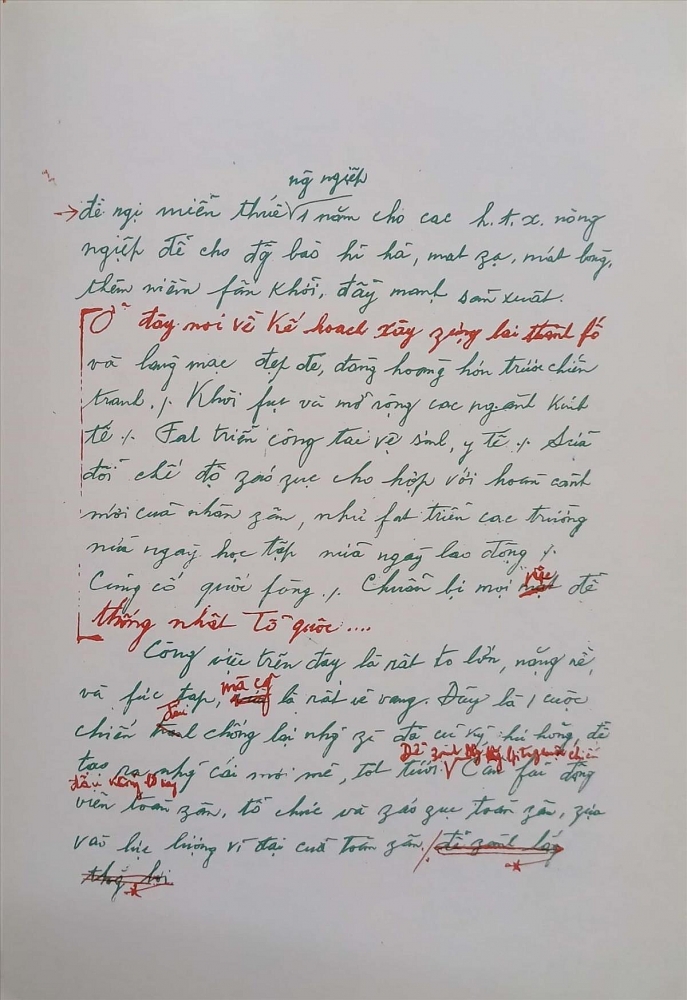 ng̃ ngiệp
đề ngị miễn thuế 1 năm cho cac h.t.x. nông
ngiệp để cho đồng bào hỉ hả, mat zạ, mát lòng,
thêm niềm fấn khởi, đẩy manh sản xuât.
Ở đây noi về kế hoach xây zựng lai thành fố
và lang mạc đẹp đẽ, đàng hoàng hơn trước chiến
tranh ./. Khôi fục và mở rộng cac ngành kinh
tế ./. Fat triển công tac vệ sinh, y tế ./. Sửa
đổi chế độ záo zục cho hợp với hoàn cảnh
mới của nhân zân, như fat triển cac trường
nửa ngay học tập nửa ngay lao động ./.
Củng cố quốc fòng ./. Chuẩn bị mọi việc để
thống nhất Tổ quốc ....
Công việc trên đay là rất to lớn, nặng nề,
và fưc tạp, mà cũng là rất vẻ vang. Đây là 1 cuộc
chiến đấu chống lại nhg̃ zì đã cũ kỹ hư hỏng, để
tao ra nhg̃ cái mới mẻ, tốt tươi. Để zành lấy thắng lợi trong cuộc chiến
đấu khổng lồ này Cần fải động
viên toàn zân, tổ chức và záo zục toàn zân, zựa
vào lực lượng vĩ đại của toàn zân. để zành lấy
thắng lợi